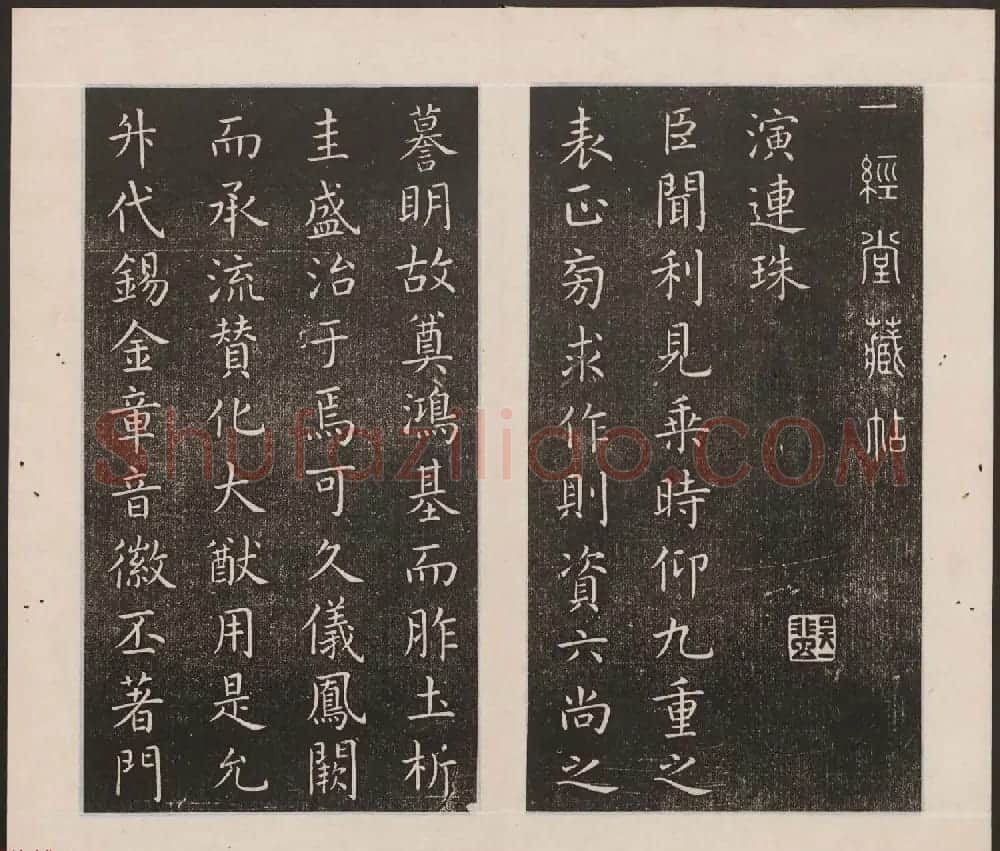 一經堂藏帖
演連珠
臣聞利見乘時仰九重之
表正旁求作則資六尚之
謩明故奠鴻基而胙土析
圭盛治于焉可久儀鳳闕
而承流贊化大猷用是允
升代錫金章音徽丕著門
Shufaziliao.COM